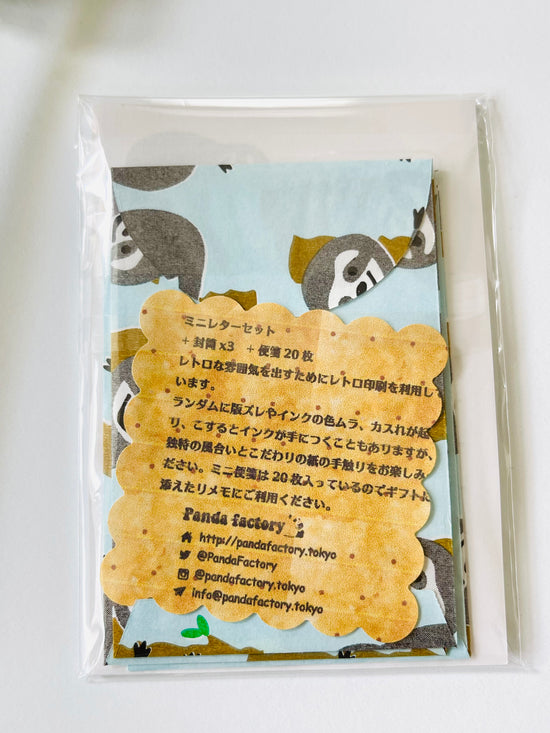 ミニレターセット
+ 封筒 x3 + 便箋 20 枚
レトロな雰囲気を出すためにレトロ印刷を利用して
います。
ランダムに版ズレやインクの色ムラ、カスれが起
り、こするとインクが手につくこともありますが、
独特の風合いとこだわりの紙の手触りをお楽しみ
ださい。ミニ便箋は 20 枚入っているのでギフトに
添えたりメモにご利用ください。
Panda factory
http://pandafactory.tokyo
@PandaFactory
@pandafactory.tokyo
info@pandafactory.tokyo